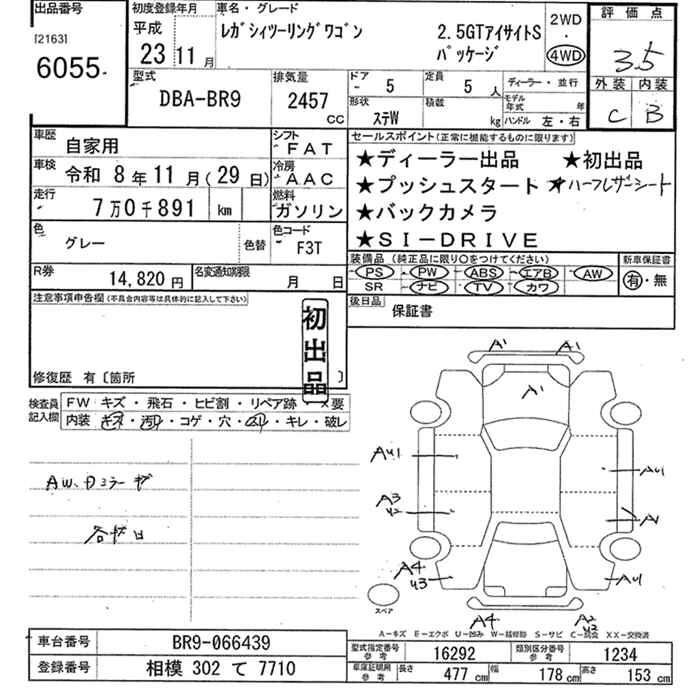 出品番号
[2163]
6055
初度登録年月
平成
23年 11月
車名・グレード
レガシィツーリングワゴン 2.5GTアイサイトS
パッケージ
2WD
・
4WD
評価点
3.5
外装 内装
C B
型式
DBA-BR9
排気量
2457
CC
ドア
- 5
定員
5人
形状
ステW
積載
kg
ディーラー・並行
モデル年式 年
ハンドル 左・右
車歴
自家用
シフト
FAT
車検
令和 8年 11月(29日)
冷房
AAC
走行
7万0千891 km
燃料
ガソリン
色
グレー
色替
色コード
F3T
R券
14,820円
名変通知期限
月 日
セールスポイント(正常に機能するものに限ります)
★ディーラー出品 ★初出品
★プッシュスタート ★ハーフレザーシート
★バックカメラ
★SI-DRIVE
装備品(純正品に限り〇をつけてください)
PS PW ABS エアB AW
SR ナビ TV カワ
新車保証書
有・無
後日品
保証書
注意事項申告欄(不具合内容等は具体的に記入して下さい)
初出品
修復歴 有〔箇所 〕
検査員記入欄
FW キズ・飛石・ヒビ割・リペア跡・×要
内装 キズ・汚れ・コゲ・穴・スレ・キレ・破レ
AW、Dミラーキズ
各キズ凹
A1 A1
A1
AU1
A3
U2
A4
U3
AU1
A1
AU1
A4
A2
U2
スペア
A-キズ E-エクボ U-凹み W-補修跡 S-サビ C-腐食 XX-交換済
車台番号
BR9-066439
登録番号
相模 302 て 7710
型式指定番号
参考
16292
類別区分番号
参考
1234
車庫証明用
参考
長さ 477cm 幅 178cm 高さ 153cm